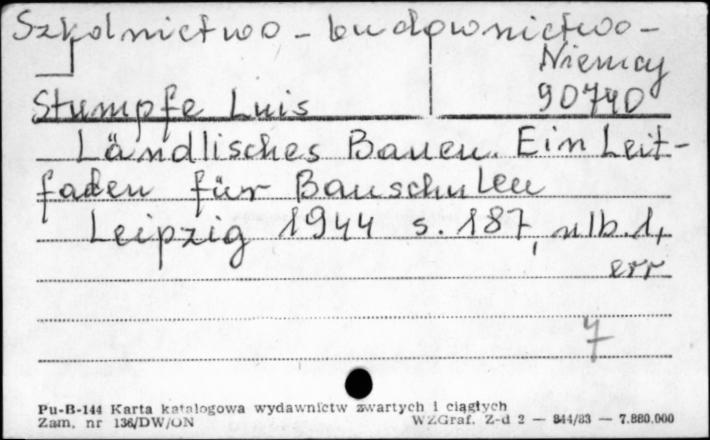 Szkolnictwo - budownictwo -
Niemcy
Stumpfe Luis 90740
Ländlisches Bauen. Ein Leit-
faden für Bauschulen
Leipzig 1944 s. 187, nlb. 1,
err
7
Pu-B-144 Karta katalogowa wydawnictw zwartych i ciągłych
Zam. nr 136/DW/ON WZGraf. Z-d 2 — 844/83 — 7.880.000